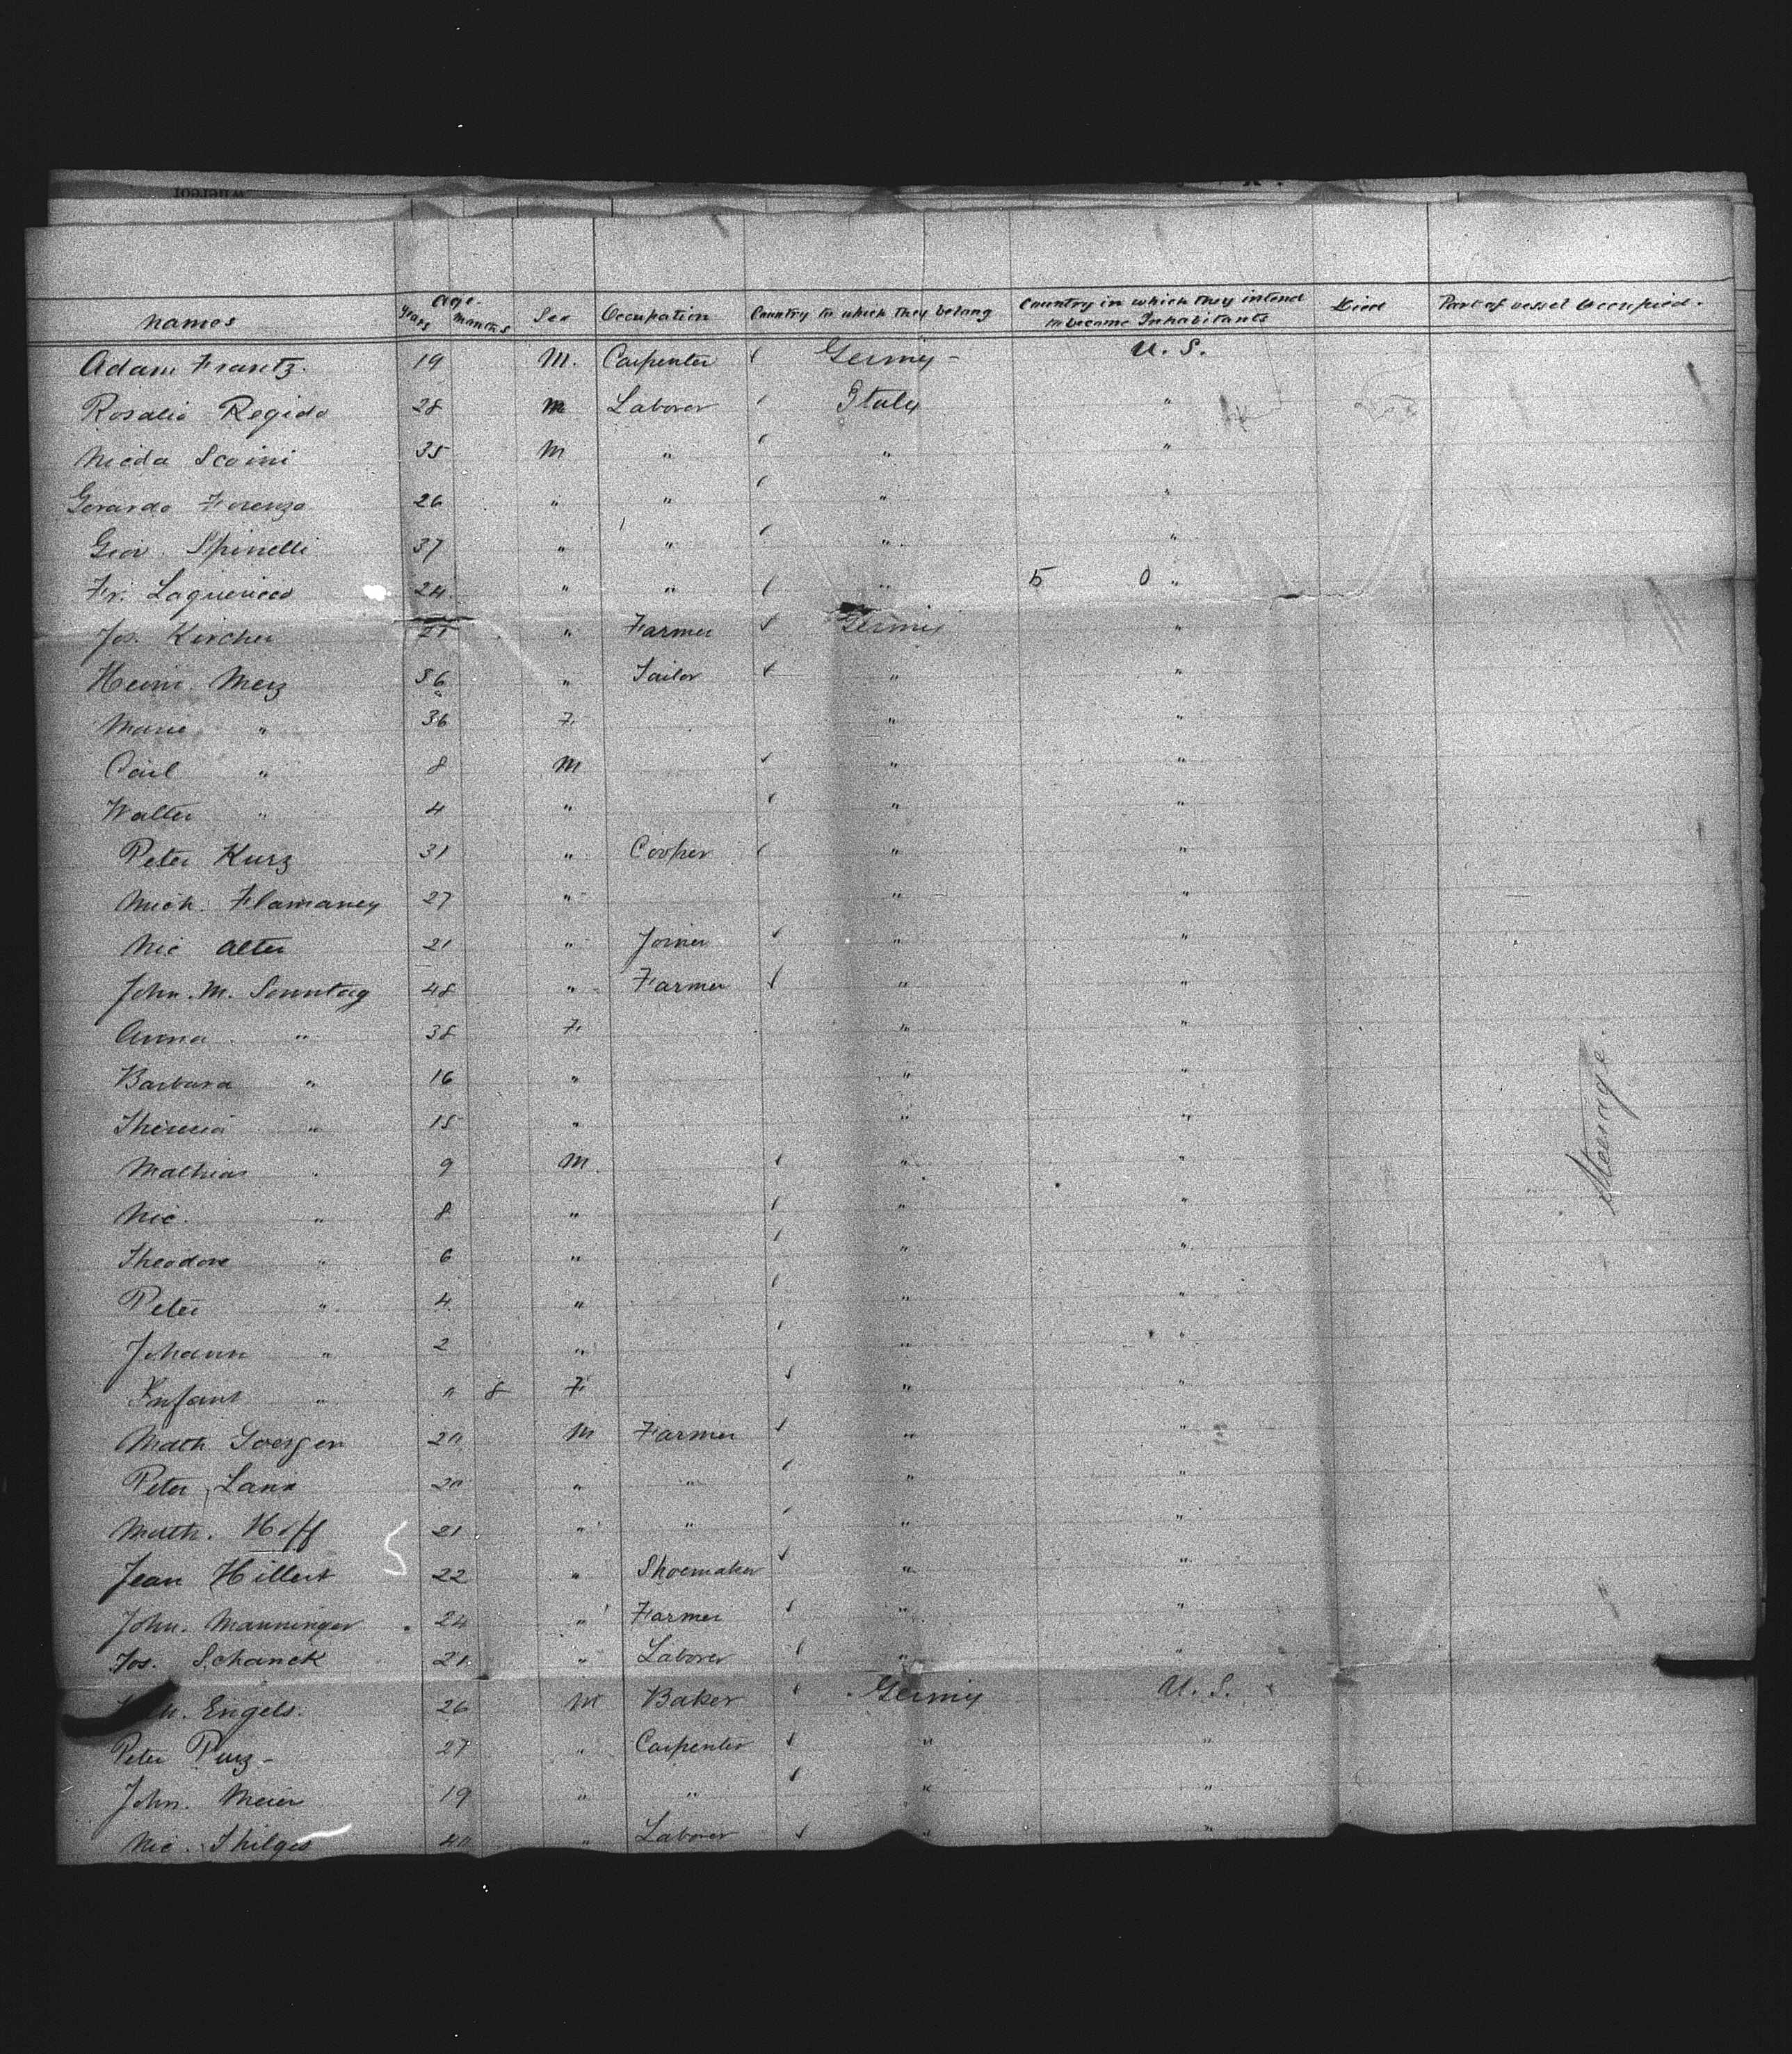 names Age Years Months Sex Occupation Country to which they belong Country in which they intend to become Inhabitants Died Part of vessel Occupied.
Adam Frantz. 19 M. Carpenter Germy - U. S.
Rosalio Regido 28 M Laborer Italy "
Nieda Scoini 35 M " " "
Gerardo Forenzo 26 " " " "
Giov. Spinelli 37 " " " "
Fr. 24 " " " 5 0 "
Jos. Kircher " Farmer Germy "
Heinr. Merz 36 " Tailor " "
Marie " 36 F. " "
Carl " 8 M " "
Walter " 4 " " "
Peter Kurz 31 " Cooper " "
Mich. Flamaney 27 " " "
Nic Alter 21 " Joiner " "
John. M. Sonntag 48 " Farmer " "
Anna " 38 F. " "
Barbara " 16 " " "
Theresia " 15 " " "
Mathias " 9 M. " "
Nic. " 8 " " "
Theodore " 6 " " "
Peter " 4 " " "
Johann " 2 " " "
Infant " " 8 F " "
Math Goergen 20 M Farmer " "
Peter Lank 20 " " " "
Math. Hoff 21 " " " "
Jean Hillert 22 " Shoemaker " "
John. Manninger 24 " Farmer " "
Jos. Schanck 21 " Laborer " "
Engels. 26 M Baker Germy U. S.
Peter Purz - 27 " Carpenter " "
John. Meier 19 " " " "
Nic. Thilges 40 " Laborer " "
Steerage
5